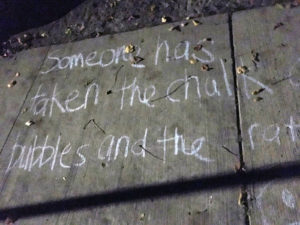 Someone has
taken the chalk
bubbles and the